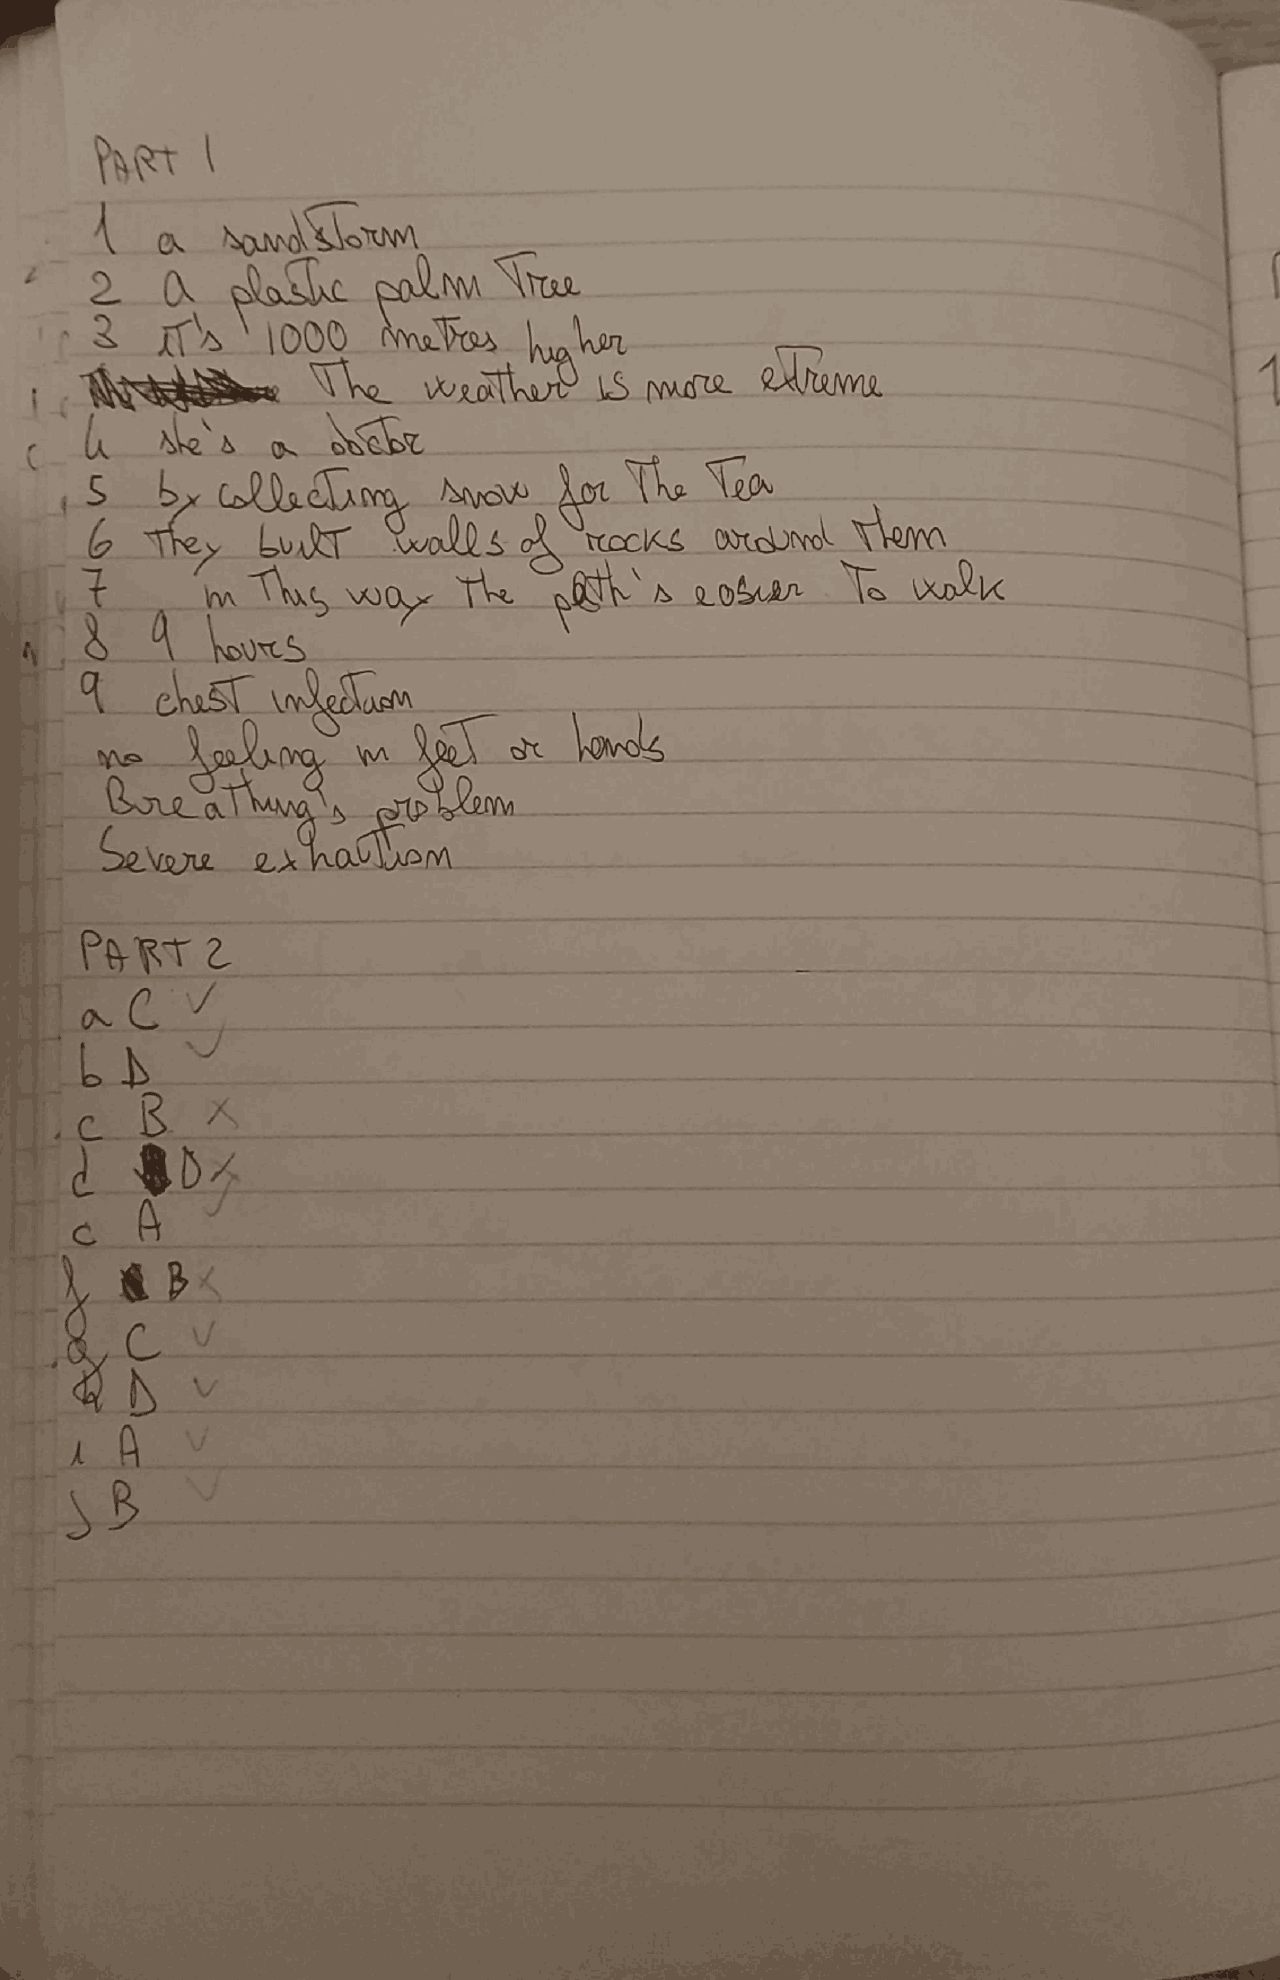 PART 1
1 a sandstorm
2 a plastic palm Tree
3 iT's 1000 metres higher
The weather is more extreme
4 she's a doctor
5 by collecting snow for The Tea
6 They built walls of rocks around Them
7 in This way The path's easier To walk
8 9 hours
9 chest infection
no feeling in feet or hands
Breathing's problem
Severe exhaustion
PART 2
a C ✓
b D ✓
c B x
d D x
e A ✓
f B x
g C ✓
h D ✓
i A ✓
J B ✓